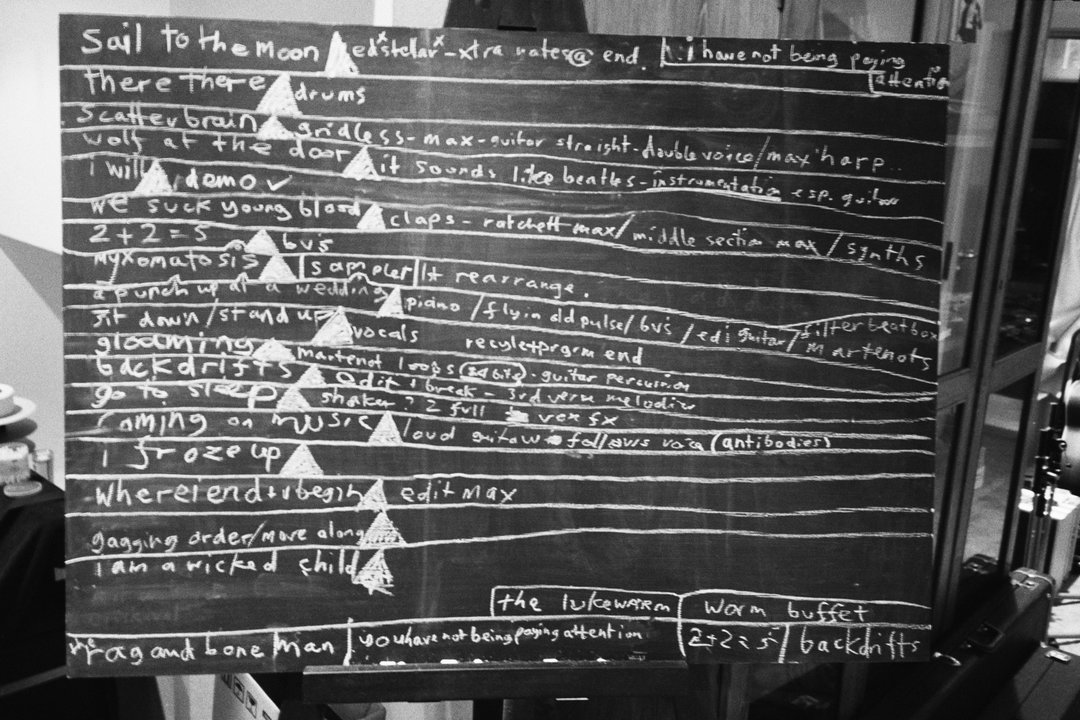 Sail to the Moon ed's telar - xtra notes @ end. i have not being paying attention
there there drums
Scatterbrain gridless - max - guitar straight - double voice / max harp..
wolf at the door it sounds like beatles - instrumentation esp. guitar
i will demo ✓
we suck young blood claps - ratchett max / middle section max / synths
2 + 2 = 5 bvs
myxomatosis sampler 1st rearrange.
a punch up at a wedding piano / fly in old pulse / bvs / ed j guitar / filter beatbox / martenots
sit down / stand up vocals recycle + prgrm end
gloaming martenot loops (24 bit) - guitar percussion
backdrifts edit 1 break - 3rd verse melodies
go to sleep shaker? 2 full vox fx
coming on music loud guitar follows voice (antibodies)
i froze up
where i end + u begin edit max
gagging order / move along
i am a wicked child
the lukewarm worm buffet
the rag and bone man you have not being paying attention 2 + 2 = 5 / backdrifts